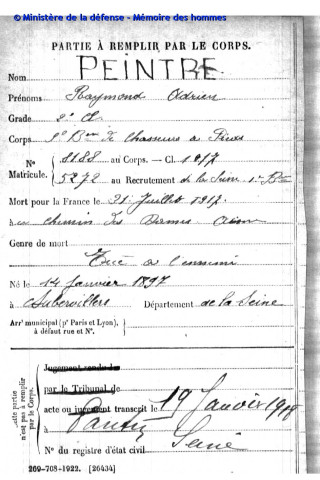 © Ministère de la défense - Mémoire des hommes
PARTIE À REMPLIR PAR LE CORPS.
Nom PEINTRE
Prénoms Raymond Adrien
Grade 2e Cl
Corps Bon de Chasseurs à Pieds
No Matricule. { 8188 au Corps. — Cl. 1917
5272 au Recrutement de la Seine 1er Bau
Mort pour la France le 31 Juillet 1917
au Chemin des Dames Aisne
Genre de mort
Tué à l'ennemi
Né le 14 Janvier 1897
à Aubervilliers Département de la Seine
Arrt municipal (pr Paris et Lyon),
à défaut rue et No.
Cette partie n'est pas à remplir par le Corps.
Jugement rendu le
par le Tribunal de
acte ou jugement transcrit le 19 Janvier 1918
à Pantin
Seine
No du registre d'état civil
269-708-1922. [26434]